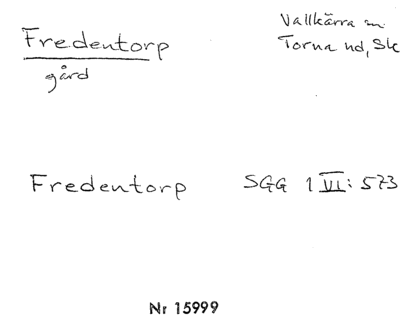 Fredentorp
gård
Vallkärra sn
Torna hd, Sk
Fredentorp SGG 1 VI: 573
Nr 15999